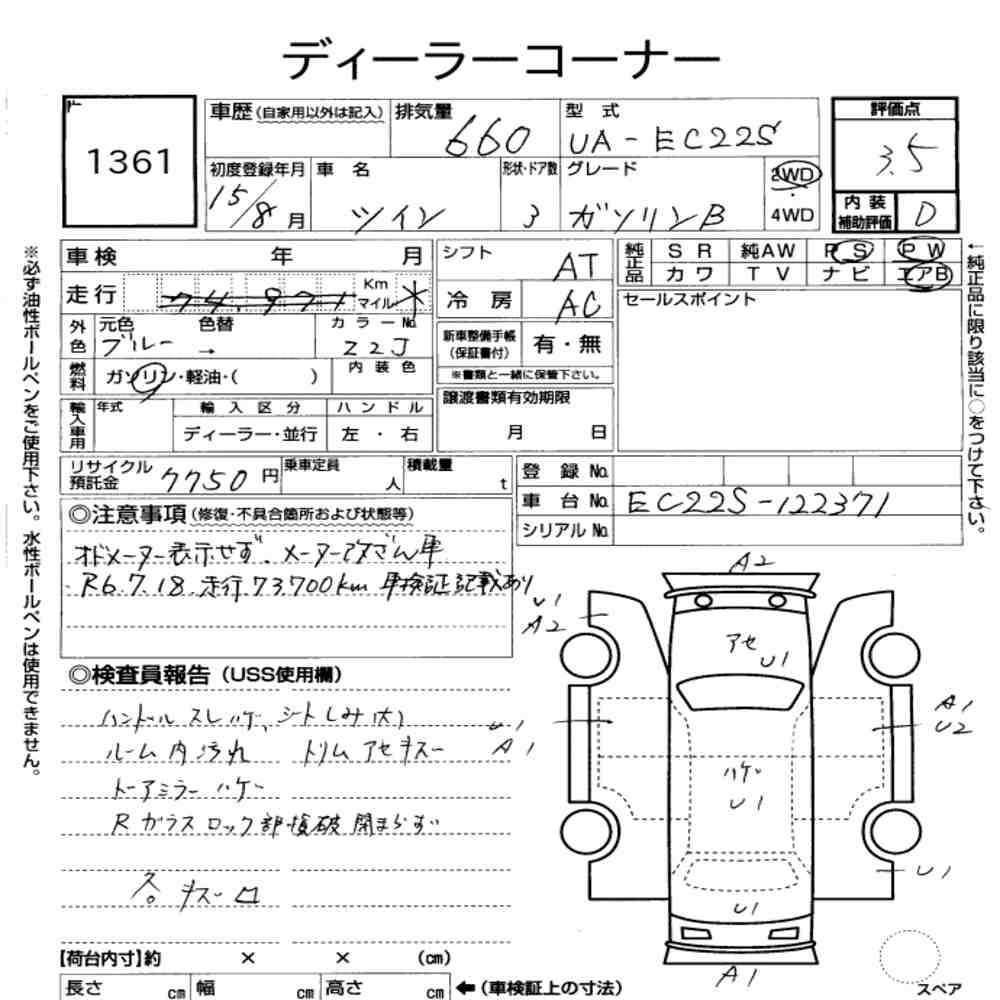 ディーラーコーナー
1361
車歴 (自家用以外は記入) 排気量 660 型式 UA-EC22S
評価点 3.5
初度登録年月 15/8月 車名 ツイン 形状・ドア数 3 グレード ガソリンB 2WD・4WD
内装補助評価 D
車検 年 月
シフト AT
純正品 SR 純AW PS PW
カワ TV ナビ エアB
走行 74,971 Km マイル *
冷房 AC
セールスポイント
外色 元色 ブルー → 色替 カラーNo. Z2J
新車整備手帳(保証書付) 有・無
※書類と一緒に保管下さい。
燃料 ガソリン・軽油・( ) 内装色
輸入車用 年式 輸入区分 ハンドル
ディーラー・並行 左・右
譲渡書類有効期限
月 日
リサイクル預託金 7750円 乗車定員 人 積載量 t
登録No.
車台No. EC22S-122371
シリアルNo.
◎注意事項(修復・不具合箇所および状態等)
オドメーター表示せず、メーター改ざん車
R6.7.18 走行73700km 車検証記載あり
◎検査員報告(USS使用欄)
ハンドル スレハゲ、シートしみ(大)
ルーム内汚れ トリムアセキズ
ドアミラーハゲ
Rガラスロック部 破 閉まらず
キズ
【荷台内寸】約 × × (cm)
長さ cm 幅 cm 高さ cm ←(車検証上の寸法)
※必ず油性ボールペンをご使用下さい。水性ボールペンは使用できません。
←純正品に限り該当に○をつけて下さい。
A2
U1
A2
アセ
U1
U1
A1
A1
U2
ハゲ
U1
U1
U1
A1
スペア